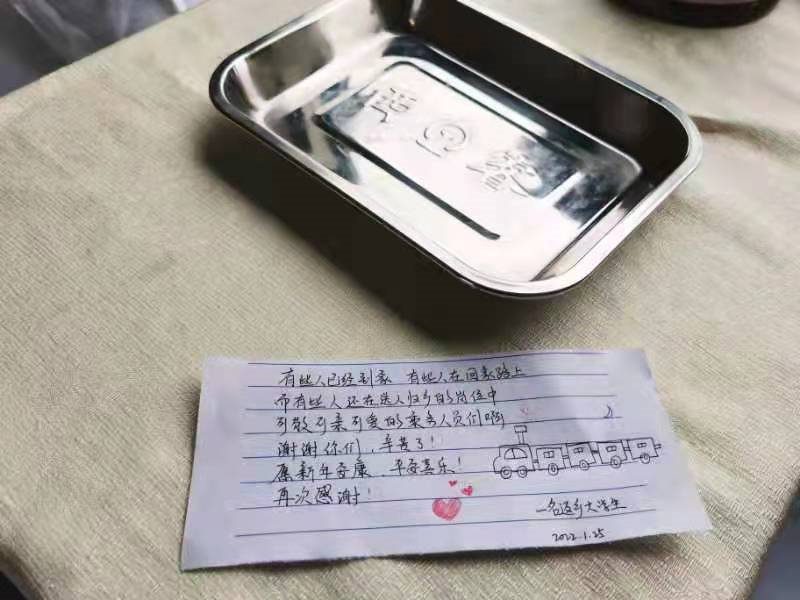 有些人已经到家 有些人在回家路上
而有些人还在送人归乡的岗位中
可敬可亲可爱的乘务人员们啊
谢谢你们，辛苦了！
愿新年安康，平安喜乐！
再次感谢！
一名返乡大学生
2022.1.25